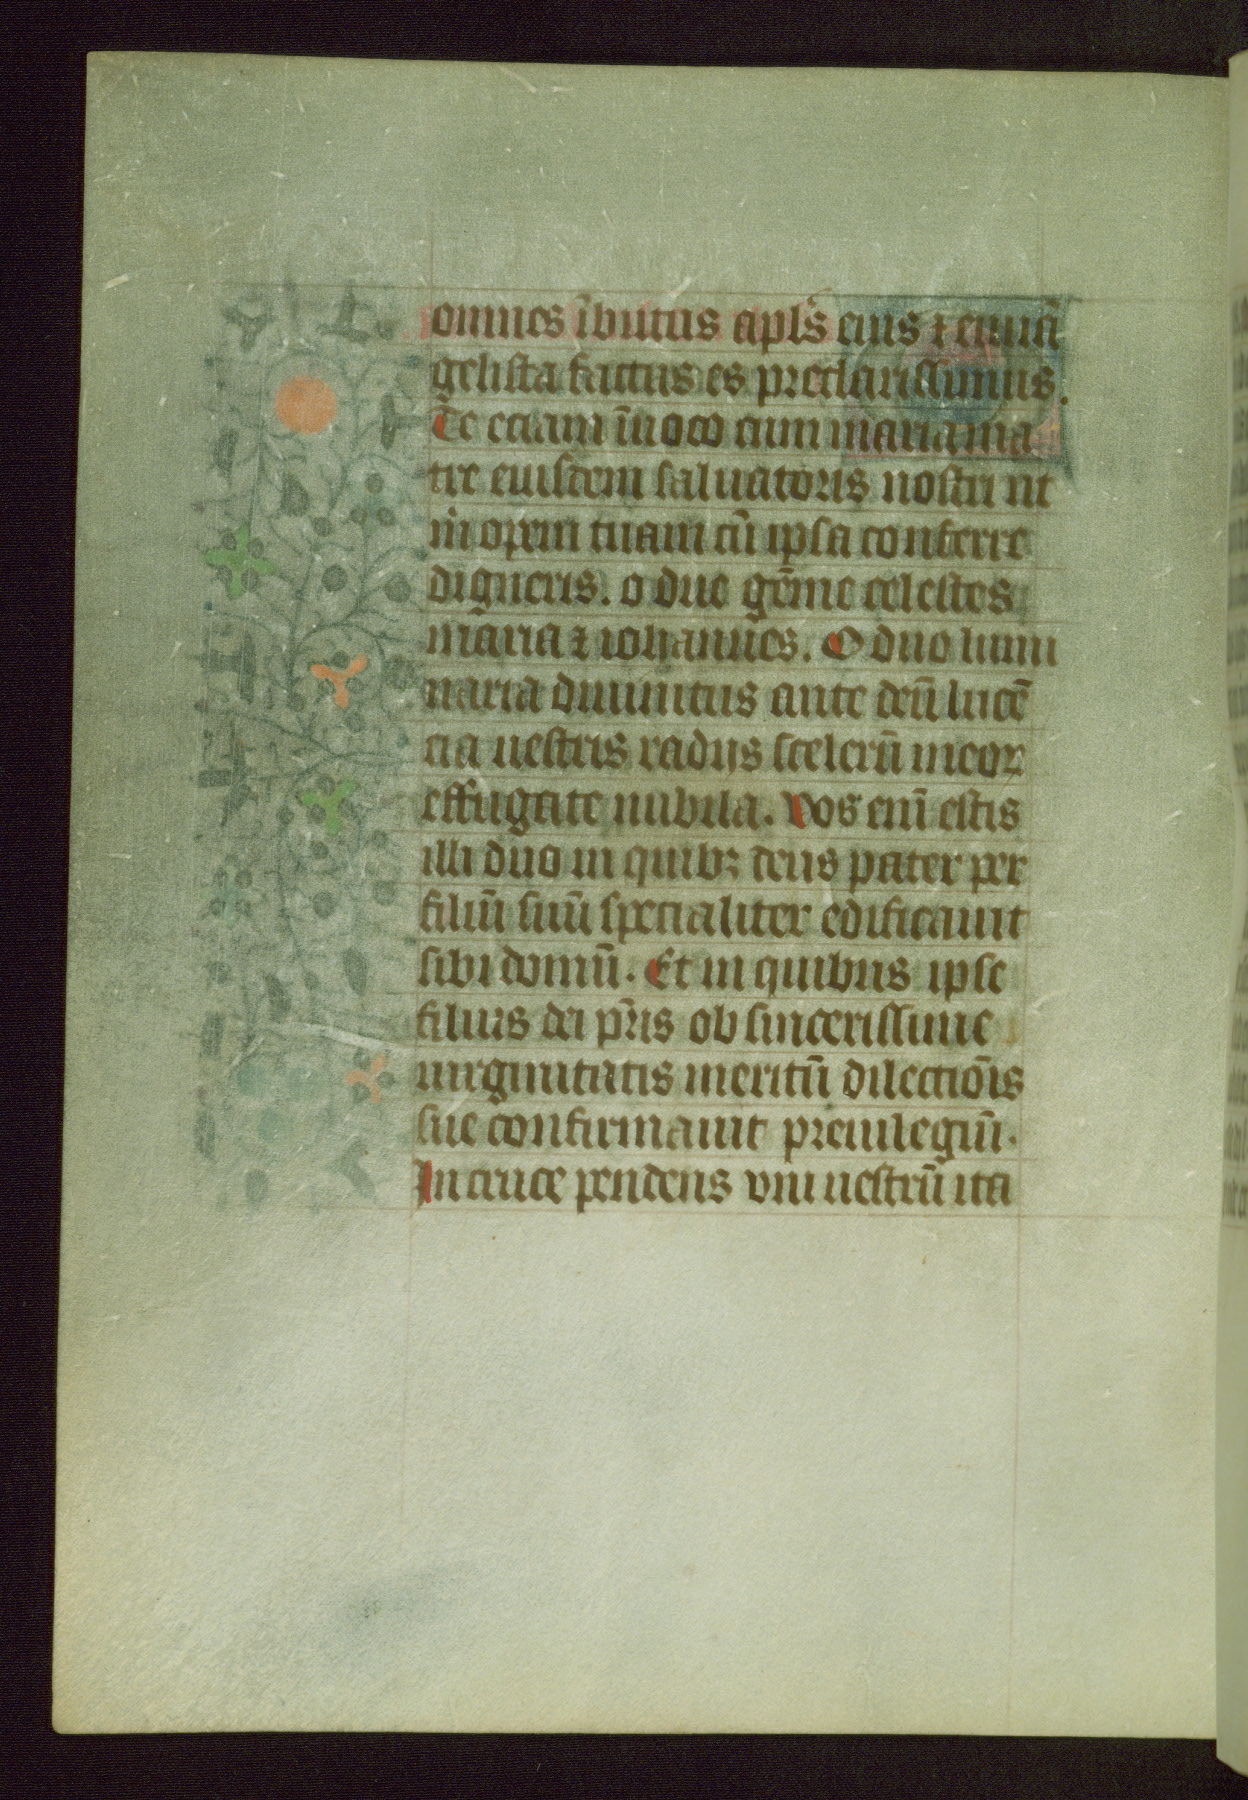 omnes ībutus apl̄s eius ⁊ euuā
gelista factus es preclarissimus.
Te eciam īuoco cum maria ma
tre eiusdem saluatoris nostri ut
m̄ opem tuam cū ipsa conferre
digneris. o due gēme celestes
maria ⁊ iohannes. O duo lumi
naria diuinitus ante deū lucē
cia uestris radijs scelerū meor
effugate nubila. Vos enī estis
illi duo in quibꝫ deus pater per
filiū suū specialiter edificauit
sibi domū. Et in quibus ipse
filius dei pr̄is ob sincerissime
uirginitatis meritū dilectiōis
sue confirmauit preiuilegiū.
In cruce pendens vni uestrū ita